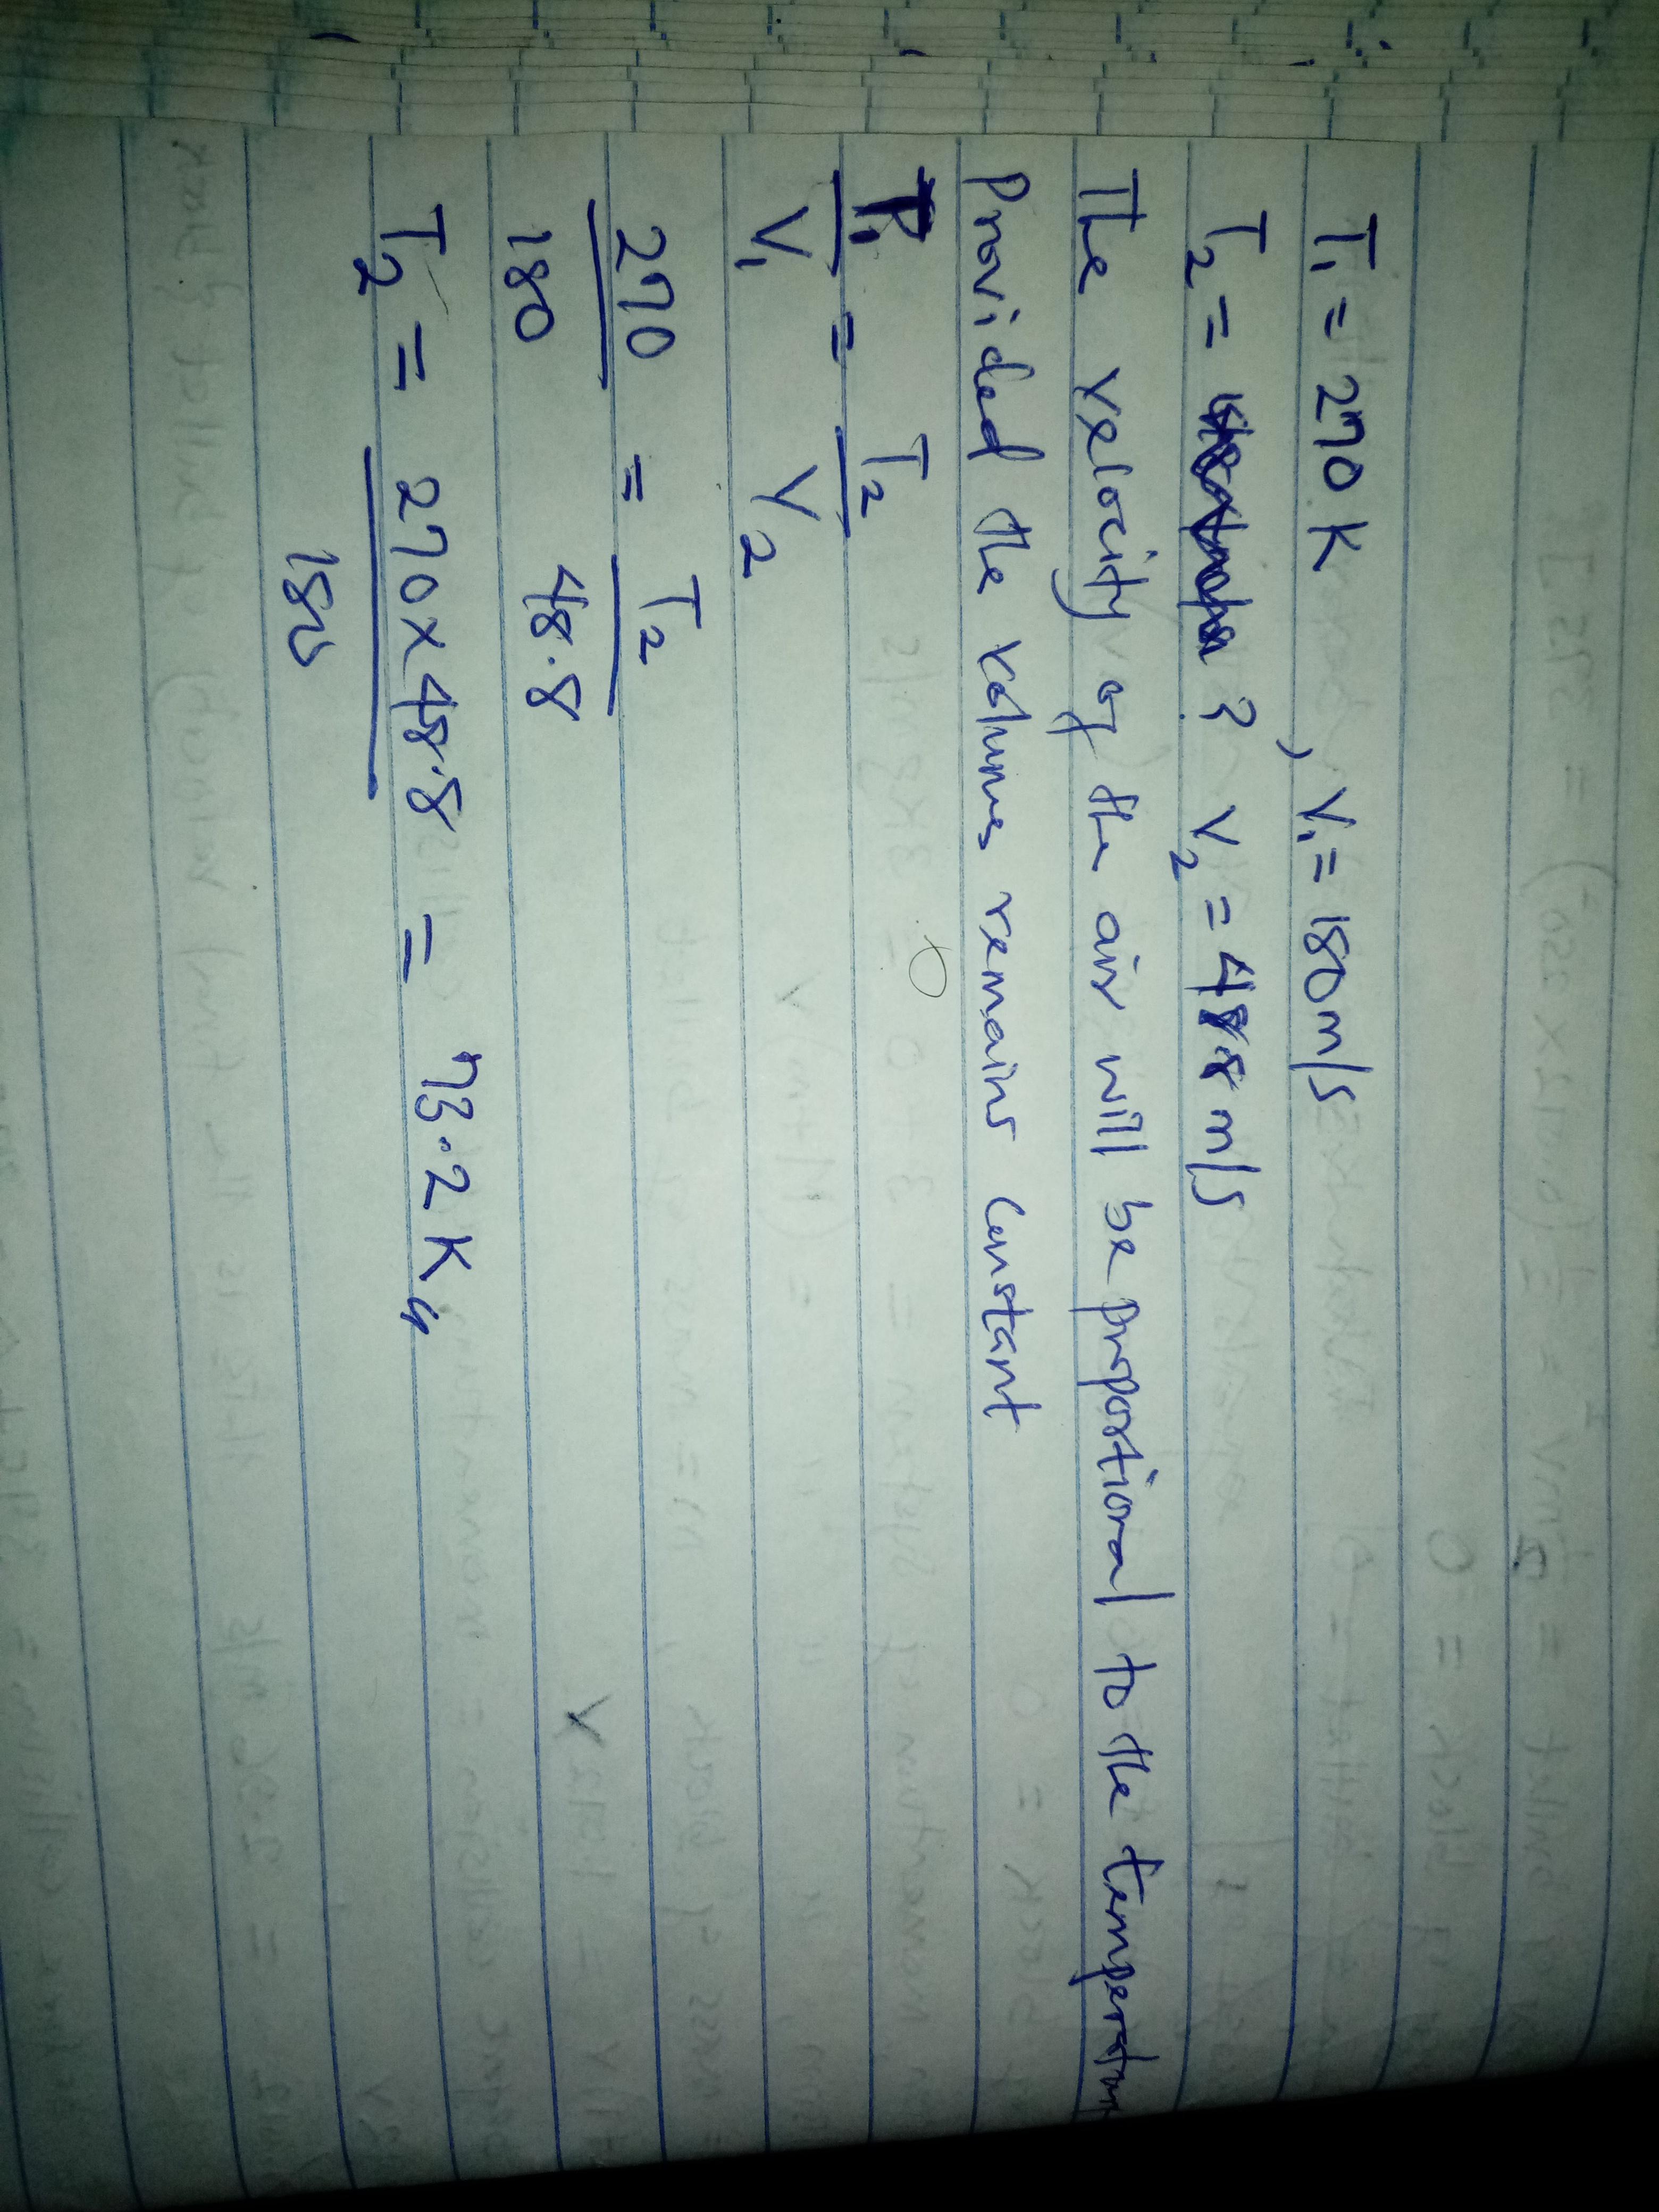 T₁ = 270 K , V₁ = 180 m/s
T₂ = ? V₂ = 48.8 m/s
The velocity of the air will be proportional to the temperature
Provided the volumes remains constant
T₁ = T₂
V₁ V₂
270 = T₂
180 48.8
T₂ = 270 × 48.8 = 73.2 K
180